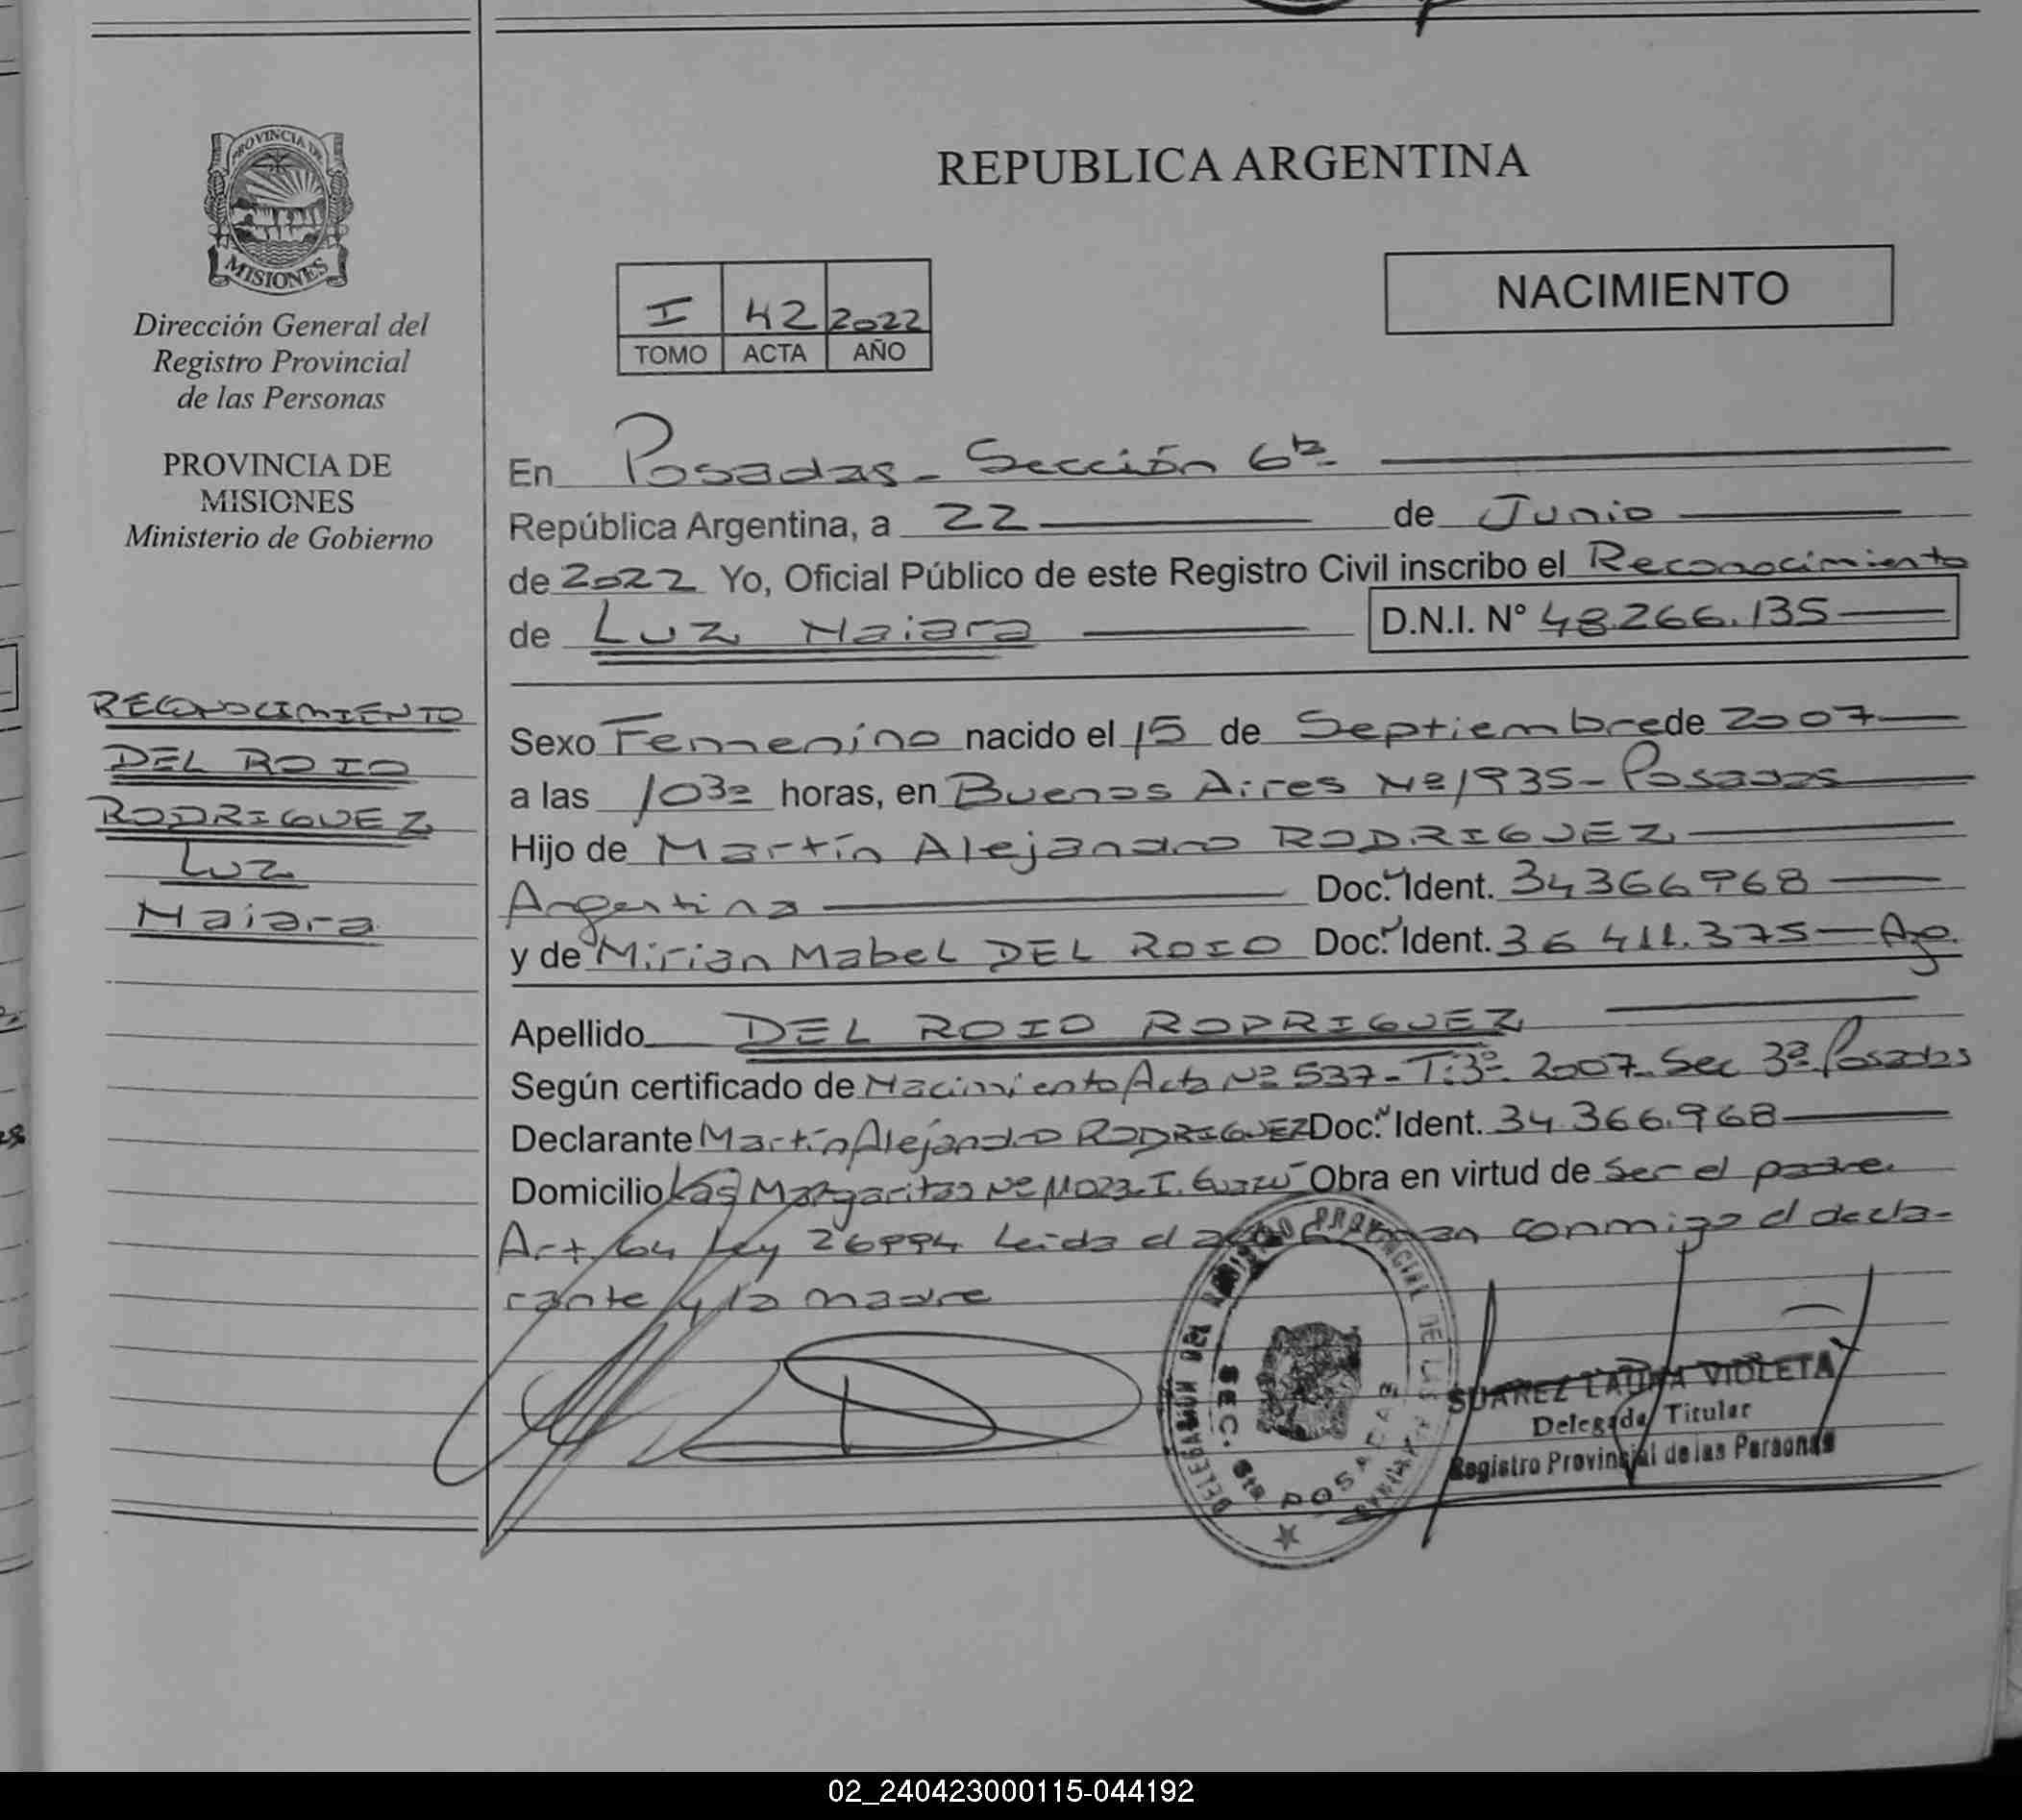 PROVINCIA DE
MISIONES
Dirección General del
Registro Provincial
de las Personas
PROVINCIA DE
MISIONES
Ministerio de Gobierno
RECONOCIMIENTO
DEL ROIO
RODRIGUEZ
Luz
Naiara
REPUBLICA ARGENTINA
NACIMIENTO
I 42 2022
TOMO ACTA AÑO
En Posadas - Sección 6ta
República Argentina, a 22 de Junio
de 2022 Yo, Oficial Público de este Registro Civil inscribo el Reconocimiento
de Luz Naiara D.N.I. N° 48.266.135
Sexo Femenino nacido el 15 de Septiembre de 2007
a las 1030 horas, en Buenos Aires Nº 1935 - Posadas
Hijo de Martín Alejandro RODRIGUEZ
Argentina Doc. Ident. 34366968
y de Mirian Mabel DEL ROIO Doc. Ident. 36 411.375 - Ago.
Apellido DEL ROIO RODRIGUEZ
Según certificado de Nacimiento Acta Nº 537 - T:3º - 2007 - Sec 3ª Posadas
Declarante Martín Alejandro RODRIGUEZ Doc. Ident. 34.366.968
Domicilio Las Margaritas Nº Obra en virtud de Ser el padre.
Art 64 Ley 26994 Leida el acta firman conmigo el decla-
rante y la madre
DELEGACION DEL REGISTRO PROVINCIAL DE LAS PERSONAS
SEC. 6ta POSADAS
MISIONES
SUAREZ LAURA VIOLETA
Delegada Titular
Registro Provincial de las Personas
02_240423000115-044192